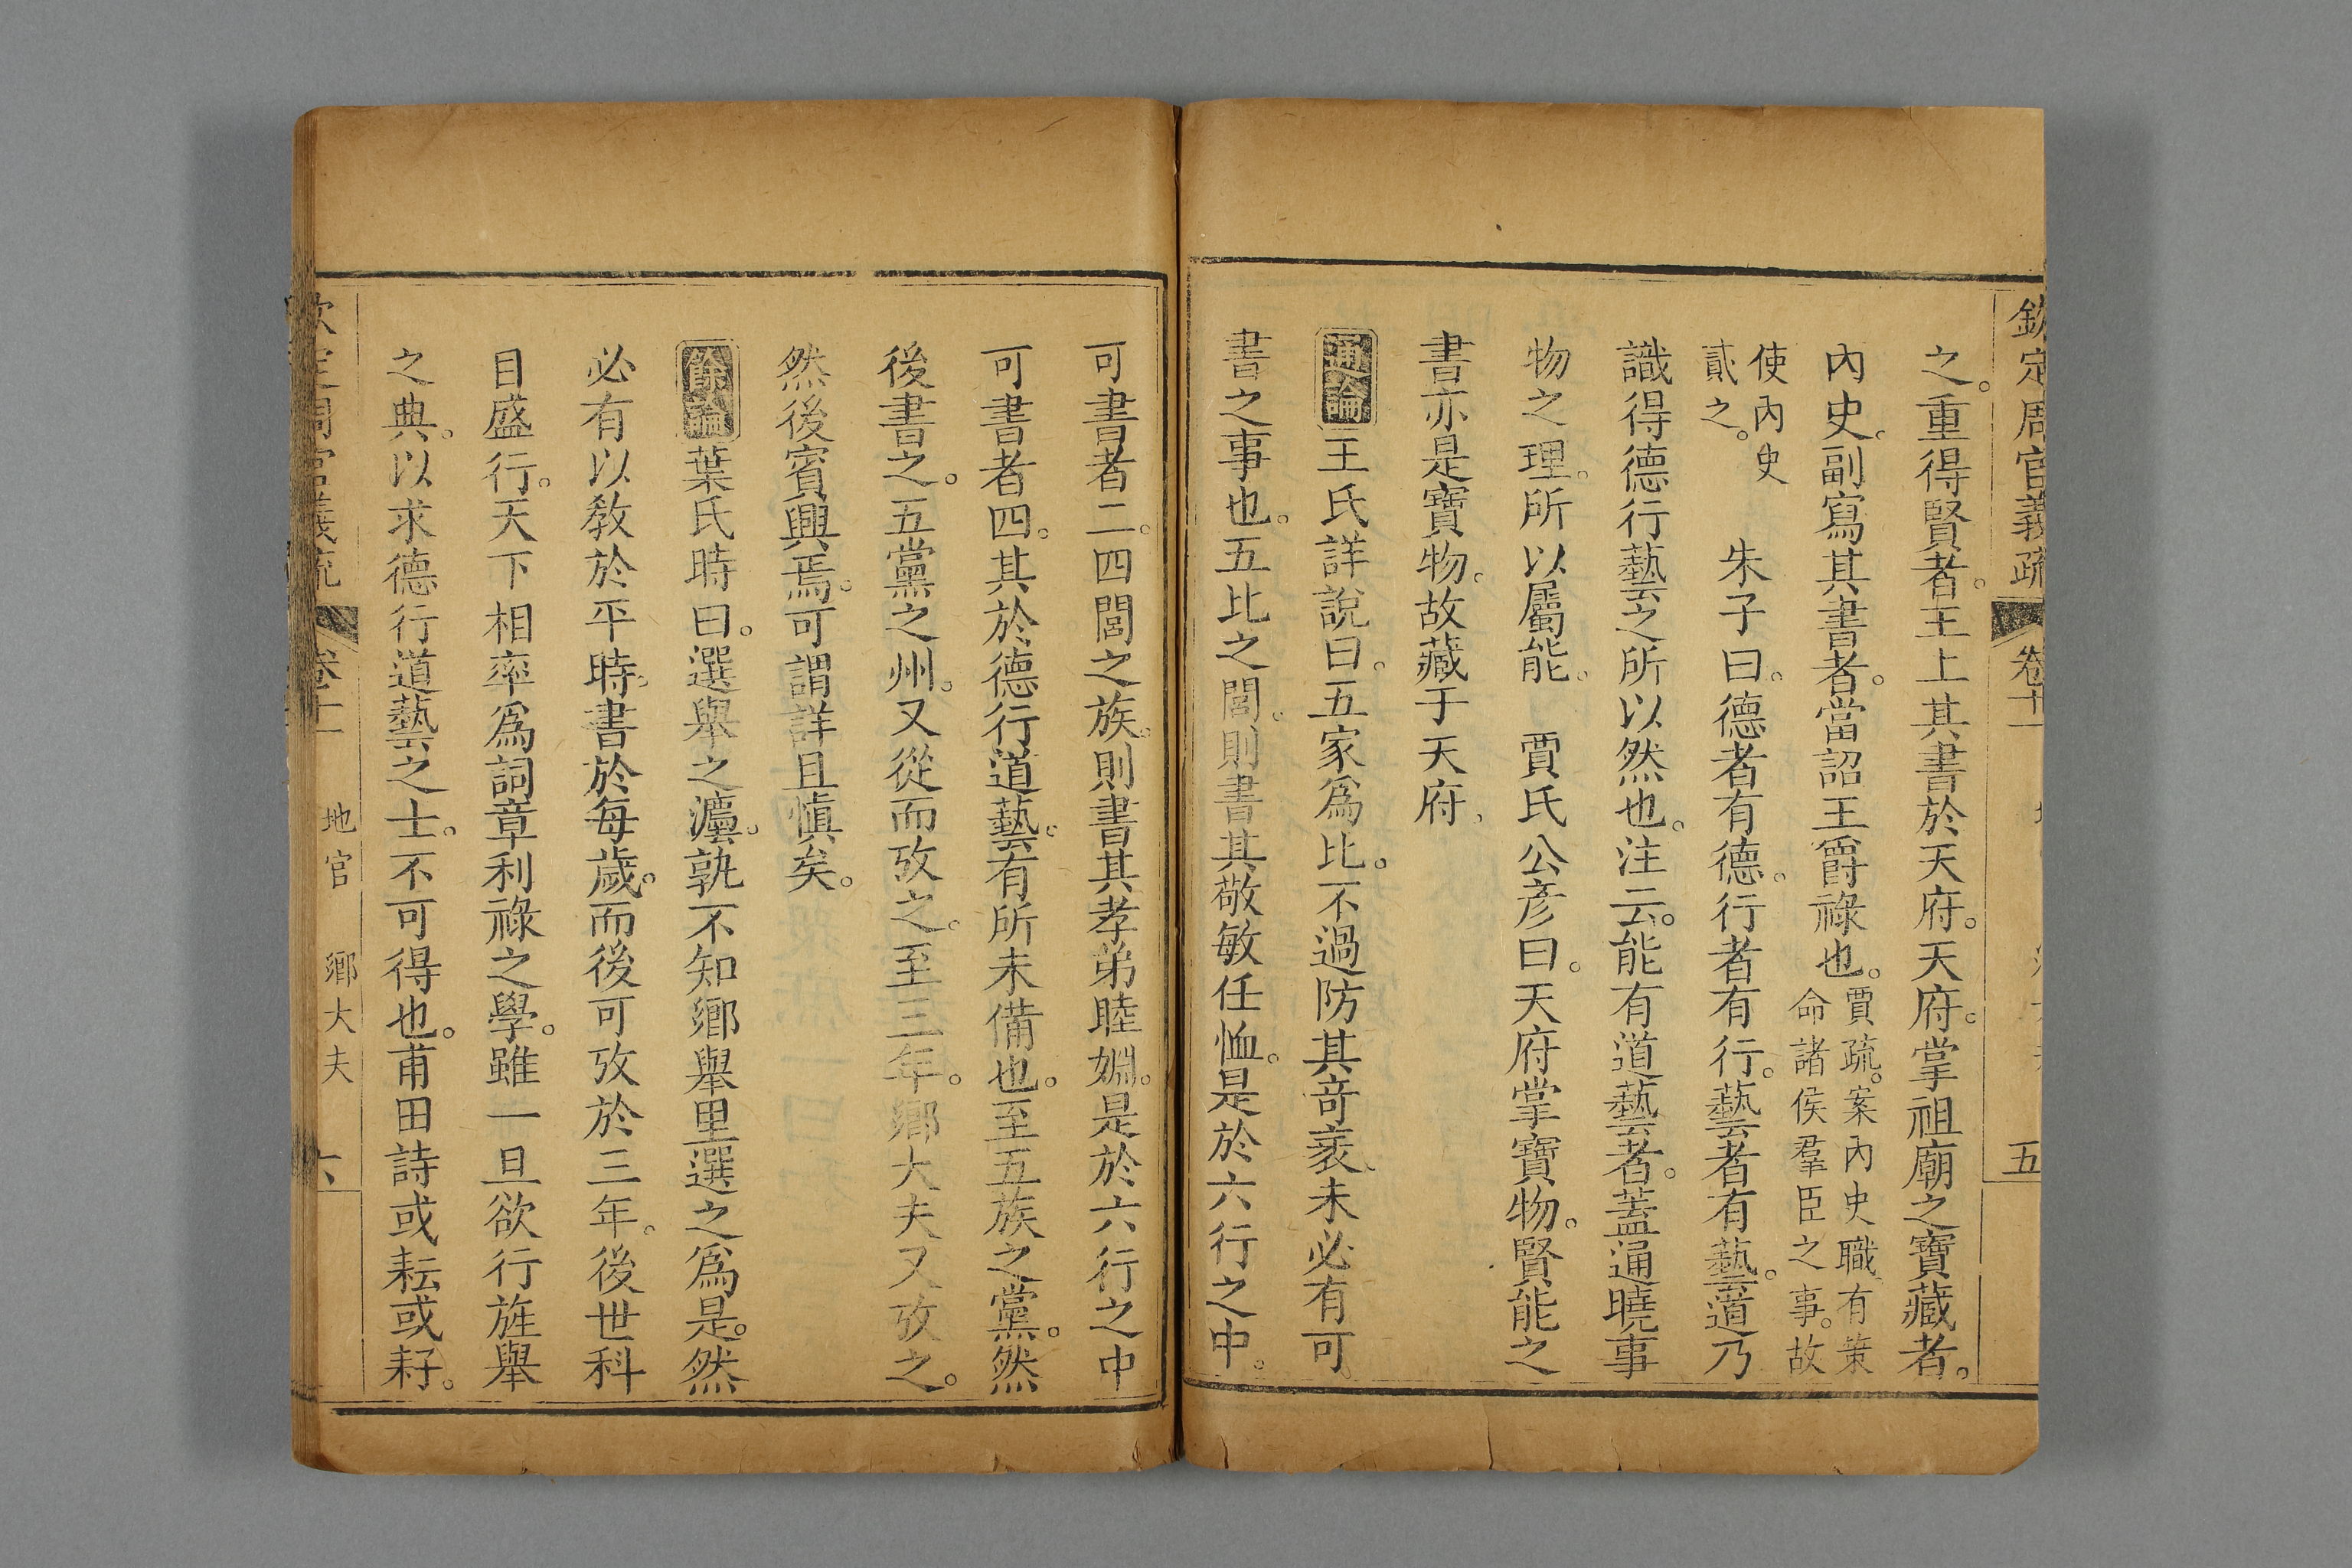 欽定周官義疏 卷十一 五
之。重得賢者。王上其書於天府。天府。掌祖廟之寶藏者。
內史。副寫其書者。當詔王爵祿也。賈疏。案內史職有策命諸侯羣臣之事。故
使內史貳之。 朱子曰。德者有德。行者有行。藝者有藝。道乃
識得德行藝之所以然也。注云。能有道藝者。蓋通曉事
物之理。所以屬能。 賈氏公彥曰。天府掌寶物。賢能之
書亦是寶物。故藏于天府。
通論 王氏詳說曰。五家爲比。不過防其奇衺。未必有可
書之事也。五比之閭。則書其敬敏任恤。是於六行之中。
可書者二。四閭之族。則書其孝弟睦婣。是於六行之中
可書者四。其於德行道藝。有所未備也。至五族之黨。然
後書之。五黨之州。又從而攷之。至三年。鄉大夫又攷之。
然後賓興焉。可謂詳且愼矣。
餘論 葉氏時曰。選舉之灋。孰不知鄉舉里選之爲是。然
必有以敎於平時。書於每歲。而後可攷於三年。後世科
目盛行。天下相率爲詞章利祿之學。雖一旦欲行旌舉
之典。以求德行道藝之士。不可得也。甫田詩或耘或耔。
欽定周官義疏 卷十一 地官 鄉大夫 六